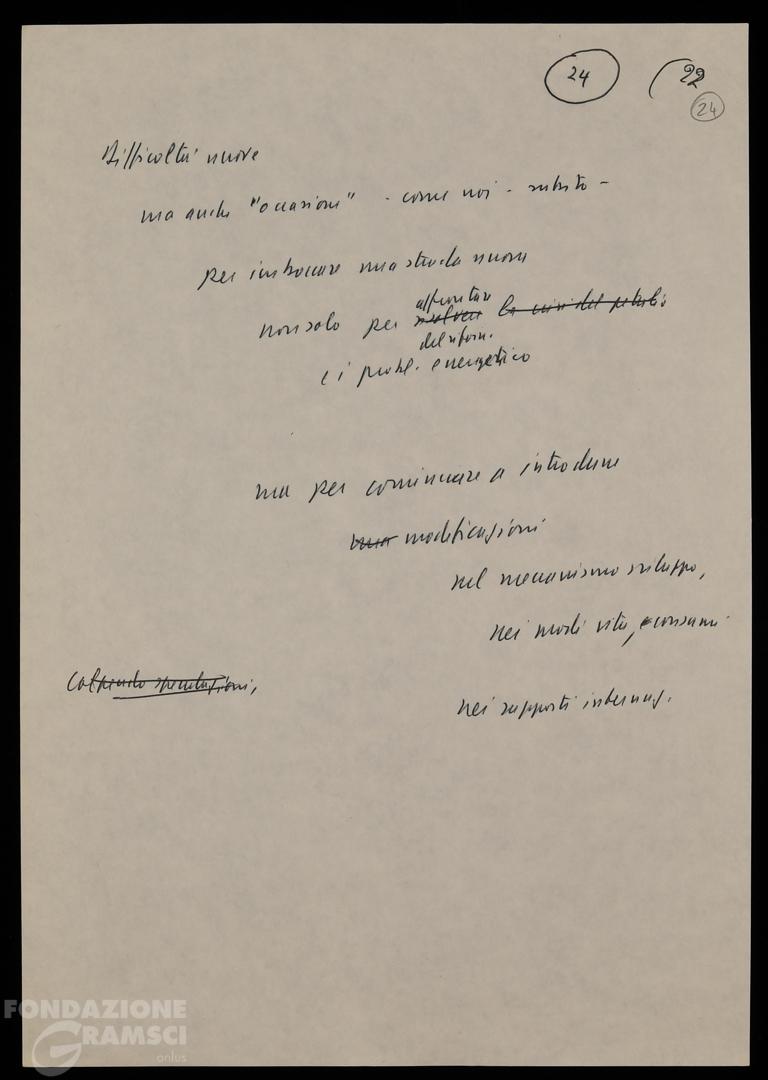 24
22
24
Difficoltà nuove
ma anche "occasione" - come noi - subito -
per imboccare una strada nuova
affrontare
non solo per risolvere la crisi del petrolio
del riforn.
e i probl. energetico
ma per cominciare a introdurre
una modificazioni
nel meccanismo sviluppo,
nei modi vita, e consumi
Colpendo speculazioni,
nei rapporti internaz.
FONDAZIONE
GRAMSCI
onlus